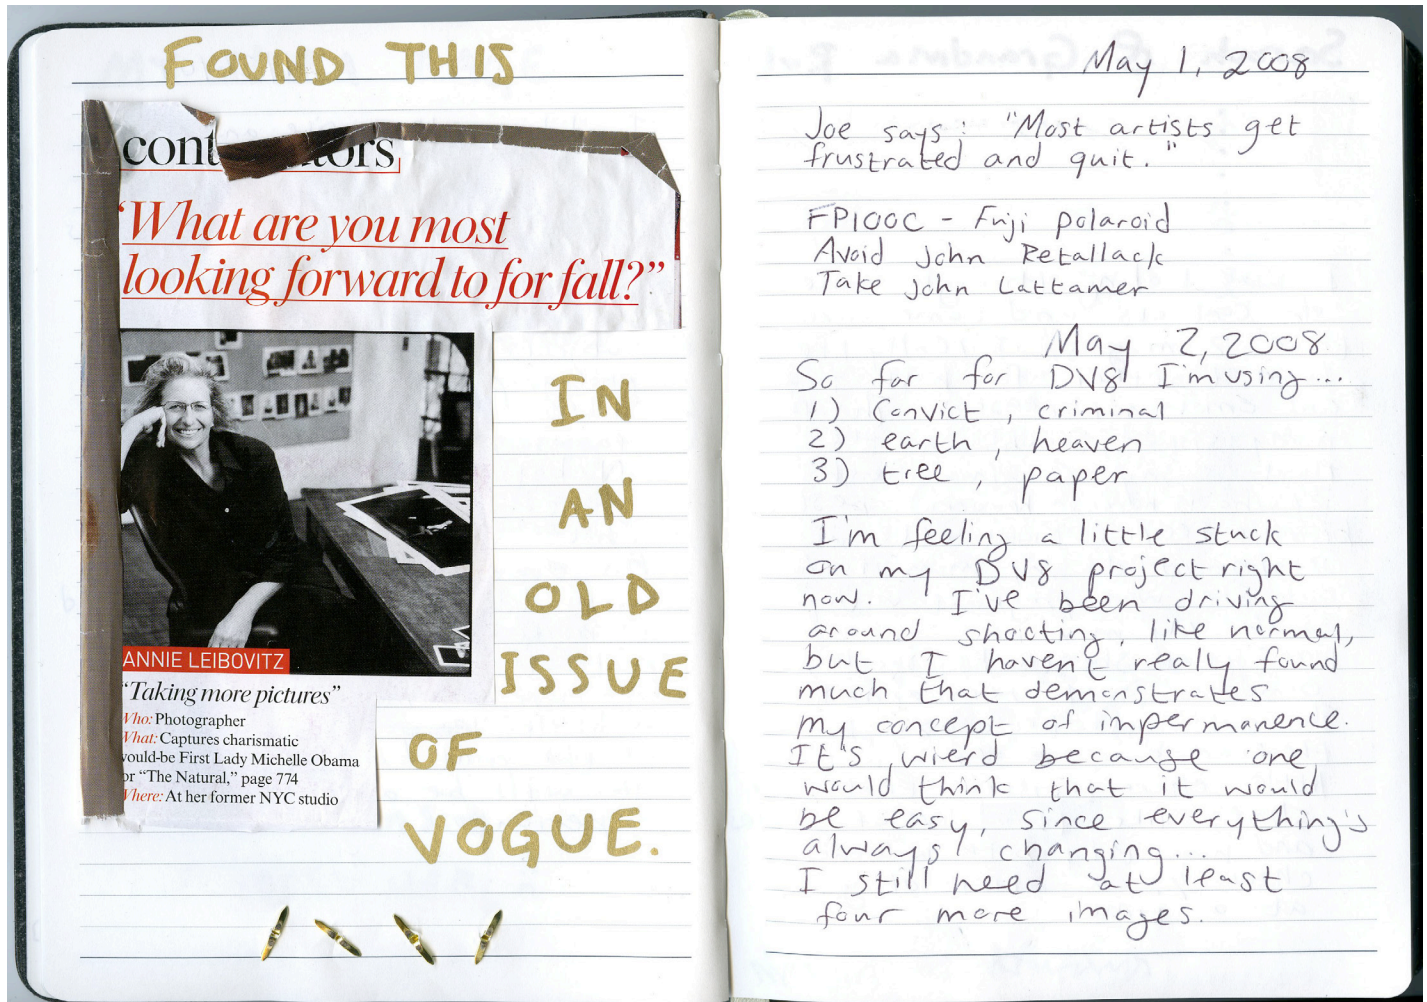 FOUND THIS
cont tors
“What are you most
looking forward to for fall?”
IN
AN
OLD
ISSUE
OF
VOGUE.
ANNIE LEIBOVITZ
“Taking more pictures”
Who: Photographer
What: Captures charismatic
would-be First Lady Michelle Obama
for “The Natural,” page 774
Where: At her former NYC studio
May 1, 2008
Joe says: "Most artists get
frustrated and quit."
FP100C - Fuji polaroid
Avoid John Retallack
Take John Lattamer
May 2, 2008
So far for DV8 I'm using...
1) Convict, criminal
2) earth, heaven
3) tree, paper
I'm feeling a little stuck
on my DV8 project right
now. I've been driving
around shooting, like normal,
but I haven't really found
much that demonstrates
my concept of impermanence.
It's wierd because one
would think that it would
be easy, since everything's
always changing...
I still need at least
four more images.